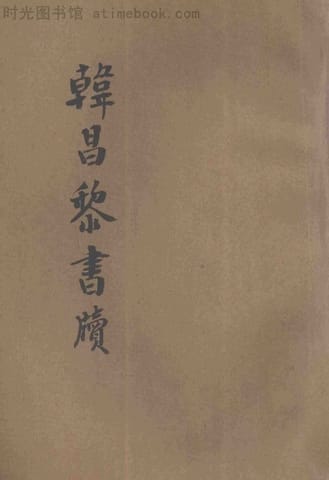 时光图书馆 atimebook.com
韓昌黎書牘